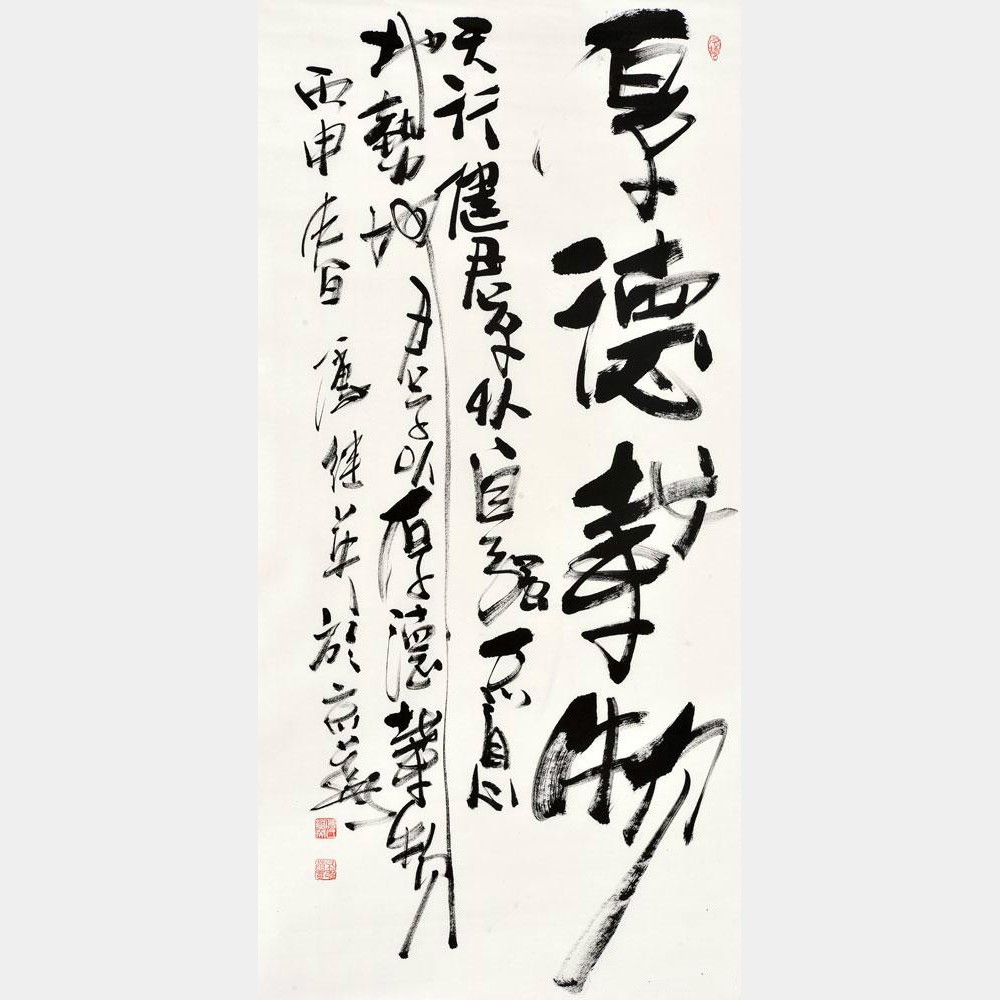 厚德載物
天行健君子以自强不息
地勢坤君子以厚德載物
丙申春日 继華於京